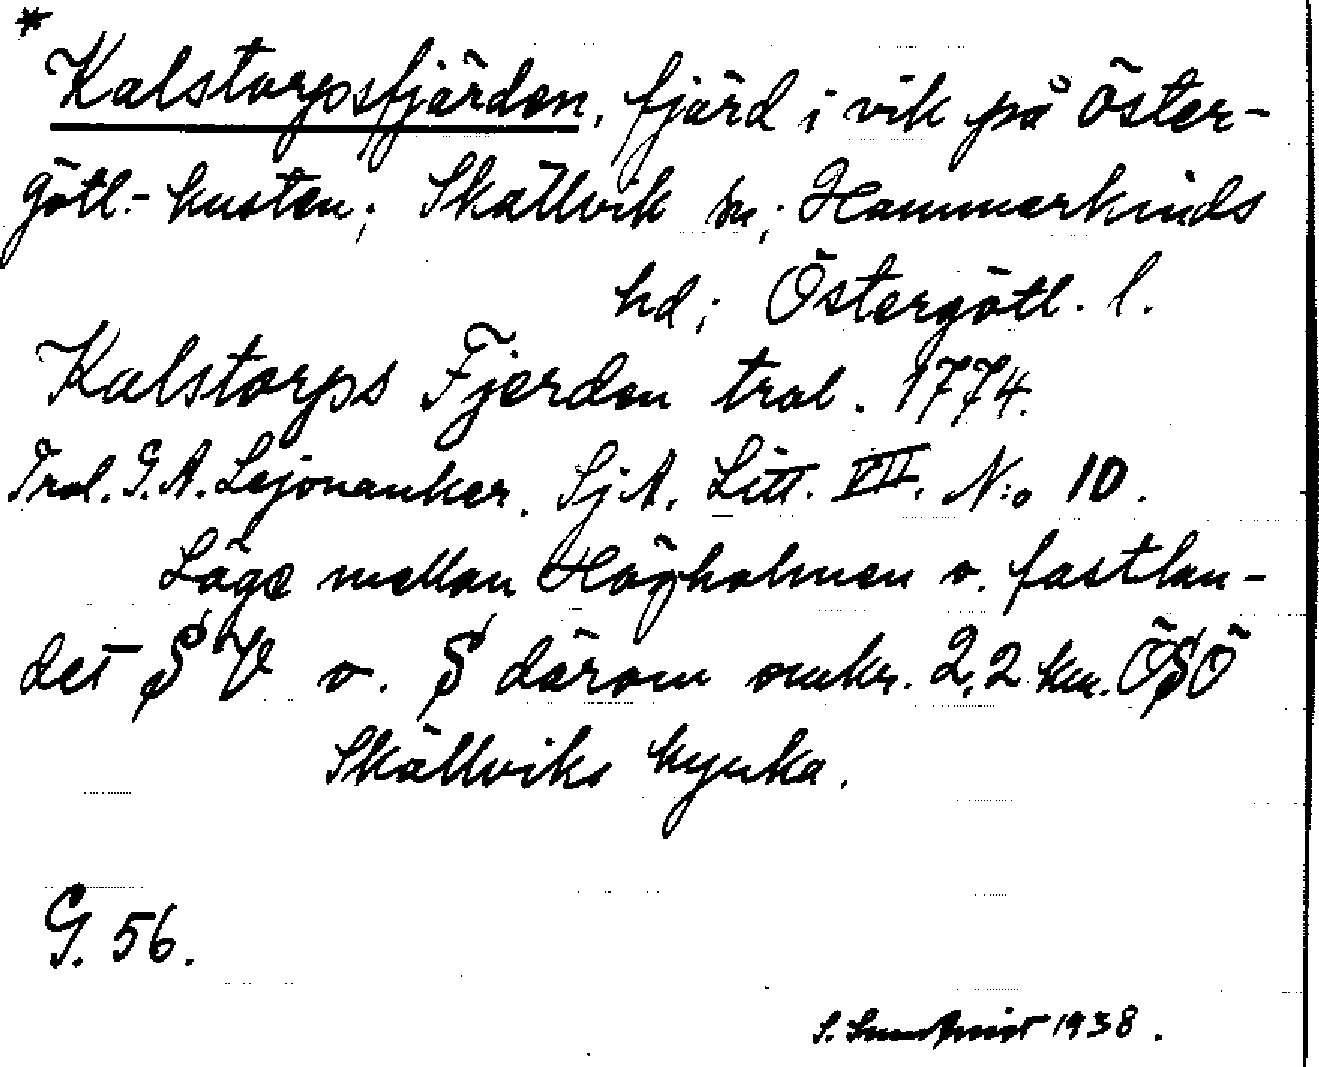 *
Kalstorpsfjärden, fjärd i vik på Öster-
götl.-kusten; Skällvik sn; Hammarkinds
hd; Östergötl. l.
Kalstorps Fjerden tral. 1774.
Tral. G.A. Lejonanker. SjA. Litt. VII. N:o 10.
Läge mellan Högholmen o. fastlan-
det S V o. S därom omkr. 2,2 km. ÖSÖ
Skällviks kyrka.
G. 56.
S. Sundqvist 1938.